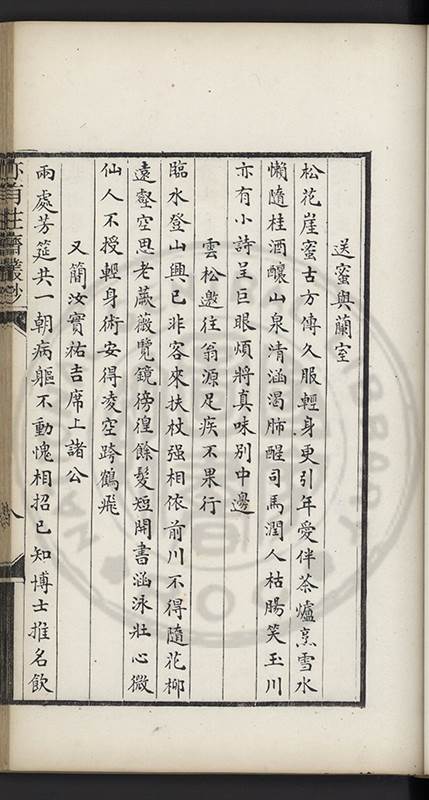 送蜜與蘭室
松花崖蜜古方傳久服輕身更引年愛伴茶爐烹雪水
懶隨桂酒釀山泉清涵渴肺醒司馬潤入枯腸笑玉川
亦有小詩呈巨眼煩將真味別中邊
雲松邀往翁源足疾不果行
臨水登山興已非客來扶杖强相依前川不得隨花柳
遠壑空思老蕨薇覽鏡徬徨餘髮短開書涵泳壯心微
仙人不授輕身術安得凌空跨鶴飛
又簡汝寶祐吉席上諸公
兩處芳筵共一朝病軀不動愧相招已知博士推名飲
亦有生齋叢鈔